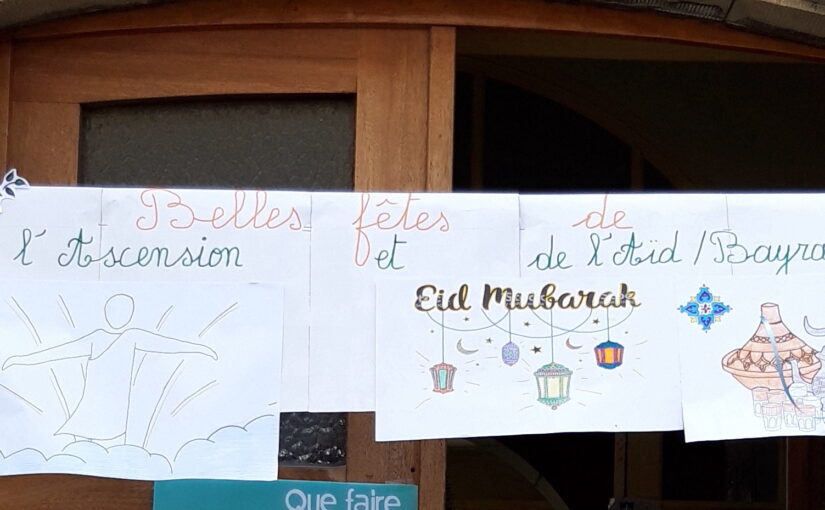 Belles fêtes de
l'Ascension et de l'Aïd / Bayra
Eid Mubarak
Que faire